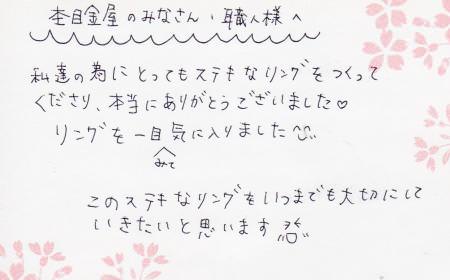 杢目金屋のみなさん、職人様へ
私達の為にとってもステキなリングをつくって
くださり、本当にありがとうございました♡
リングを一目みて気に入りました
このステキなリングをいつまでも大切にして
いきたいと思います